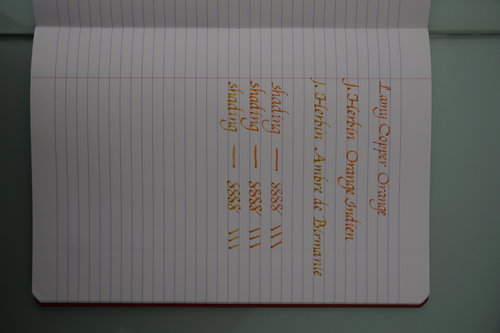 Lamy Copper Orange
J. Herbin Orange Indien
J. Herbin Ambre de Birmanie
shading — 8888 \\\
shading — 8888 \\\
shading — 8888 \\\